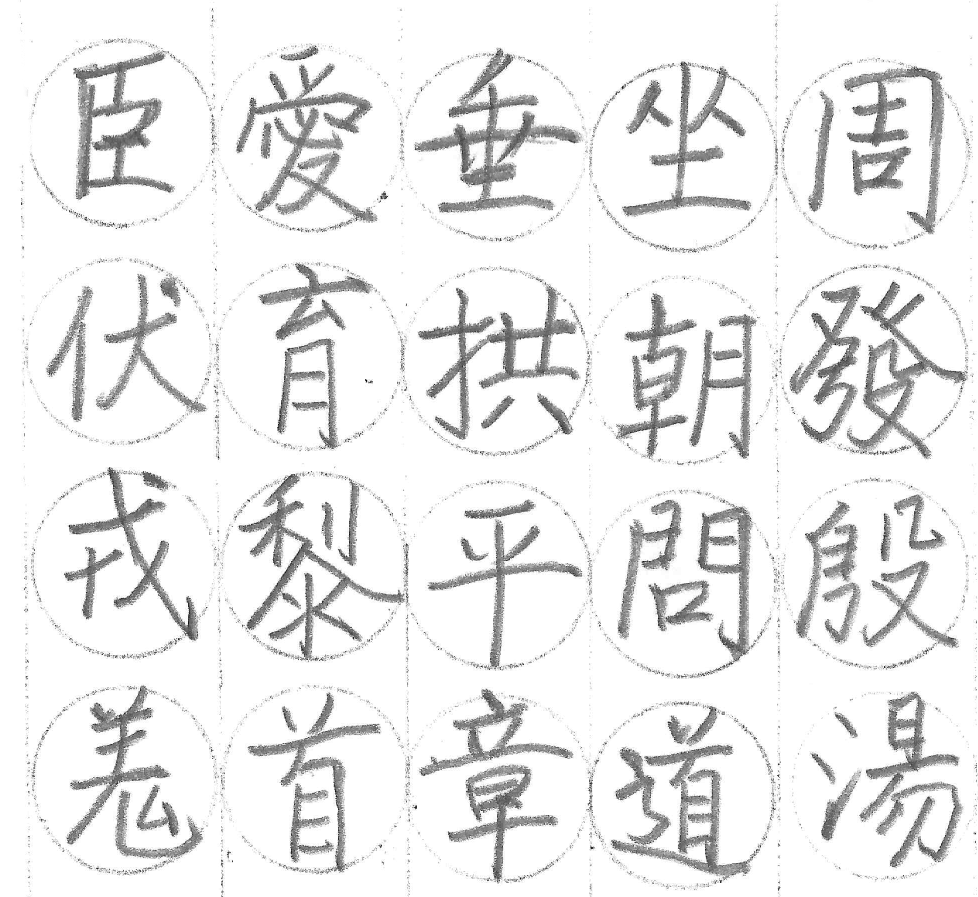 周發殷湯
坐朝問道
垂拱平章
愛育黎首
臣伏戎羌